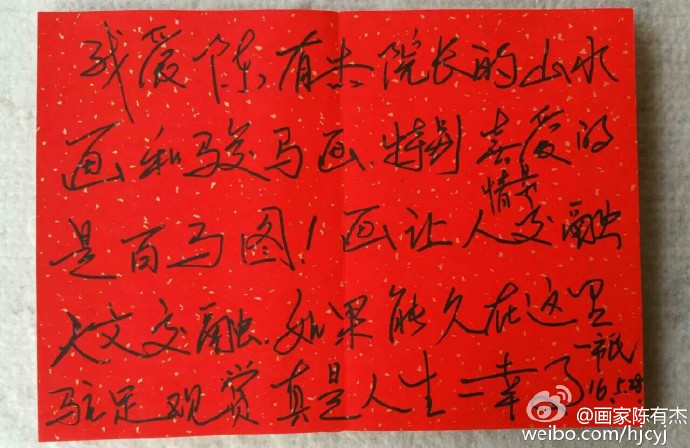 我爱陈有杰院长的山水
画和骏马画.特别喜爱的
是百马图!画让人情景交融
天文交融.如果能久在这里
驻足观赏真是人生一幸了
一市民
16.5.28.
@画家陈有杰
weibo.com/hjcyj